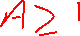 A ≥ 1